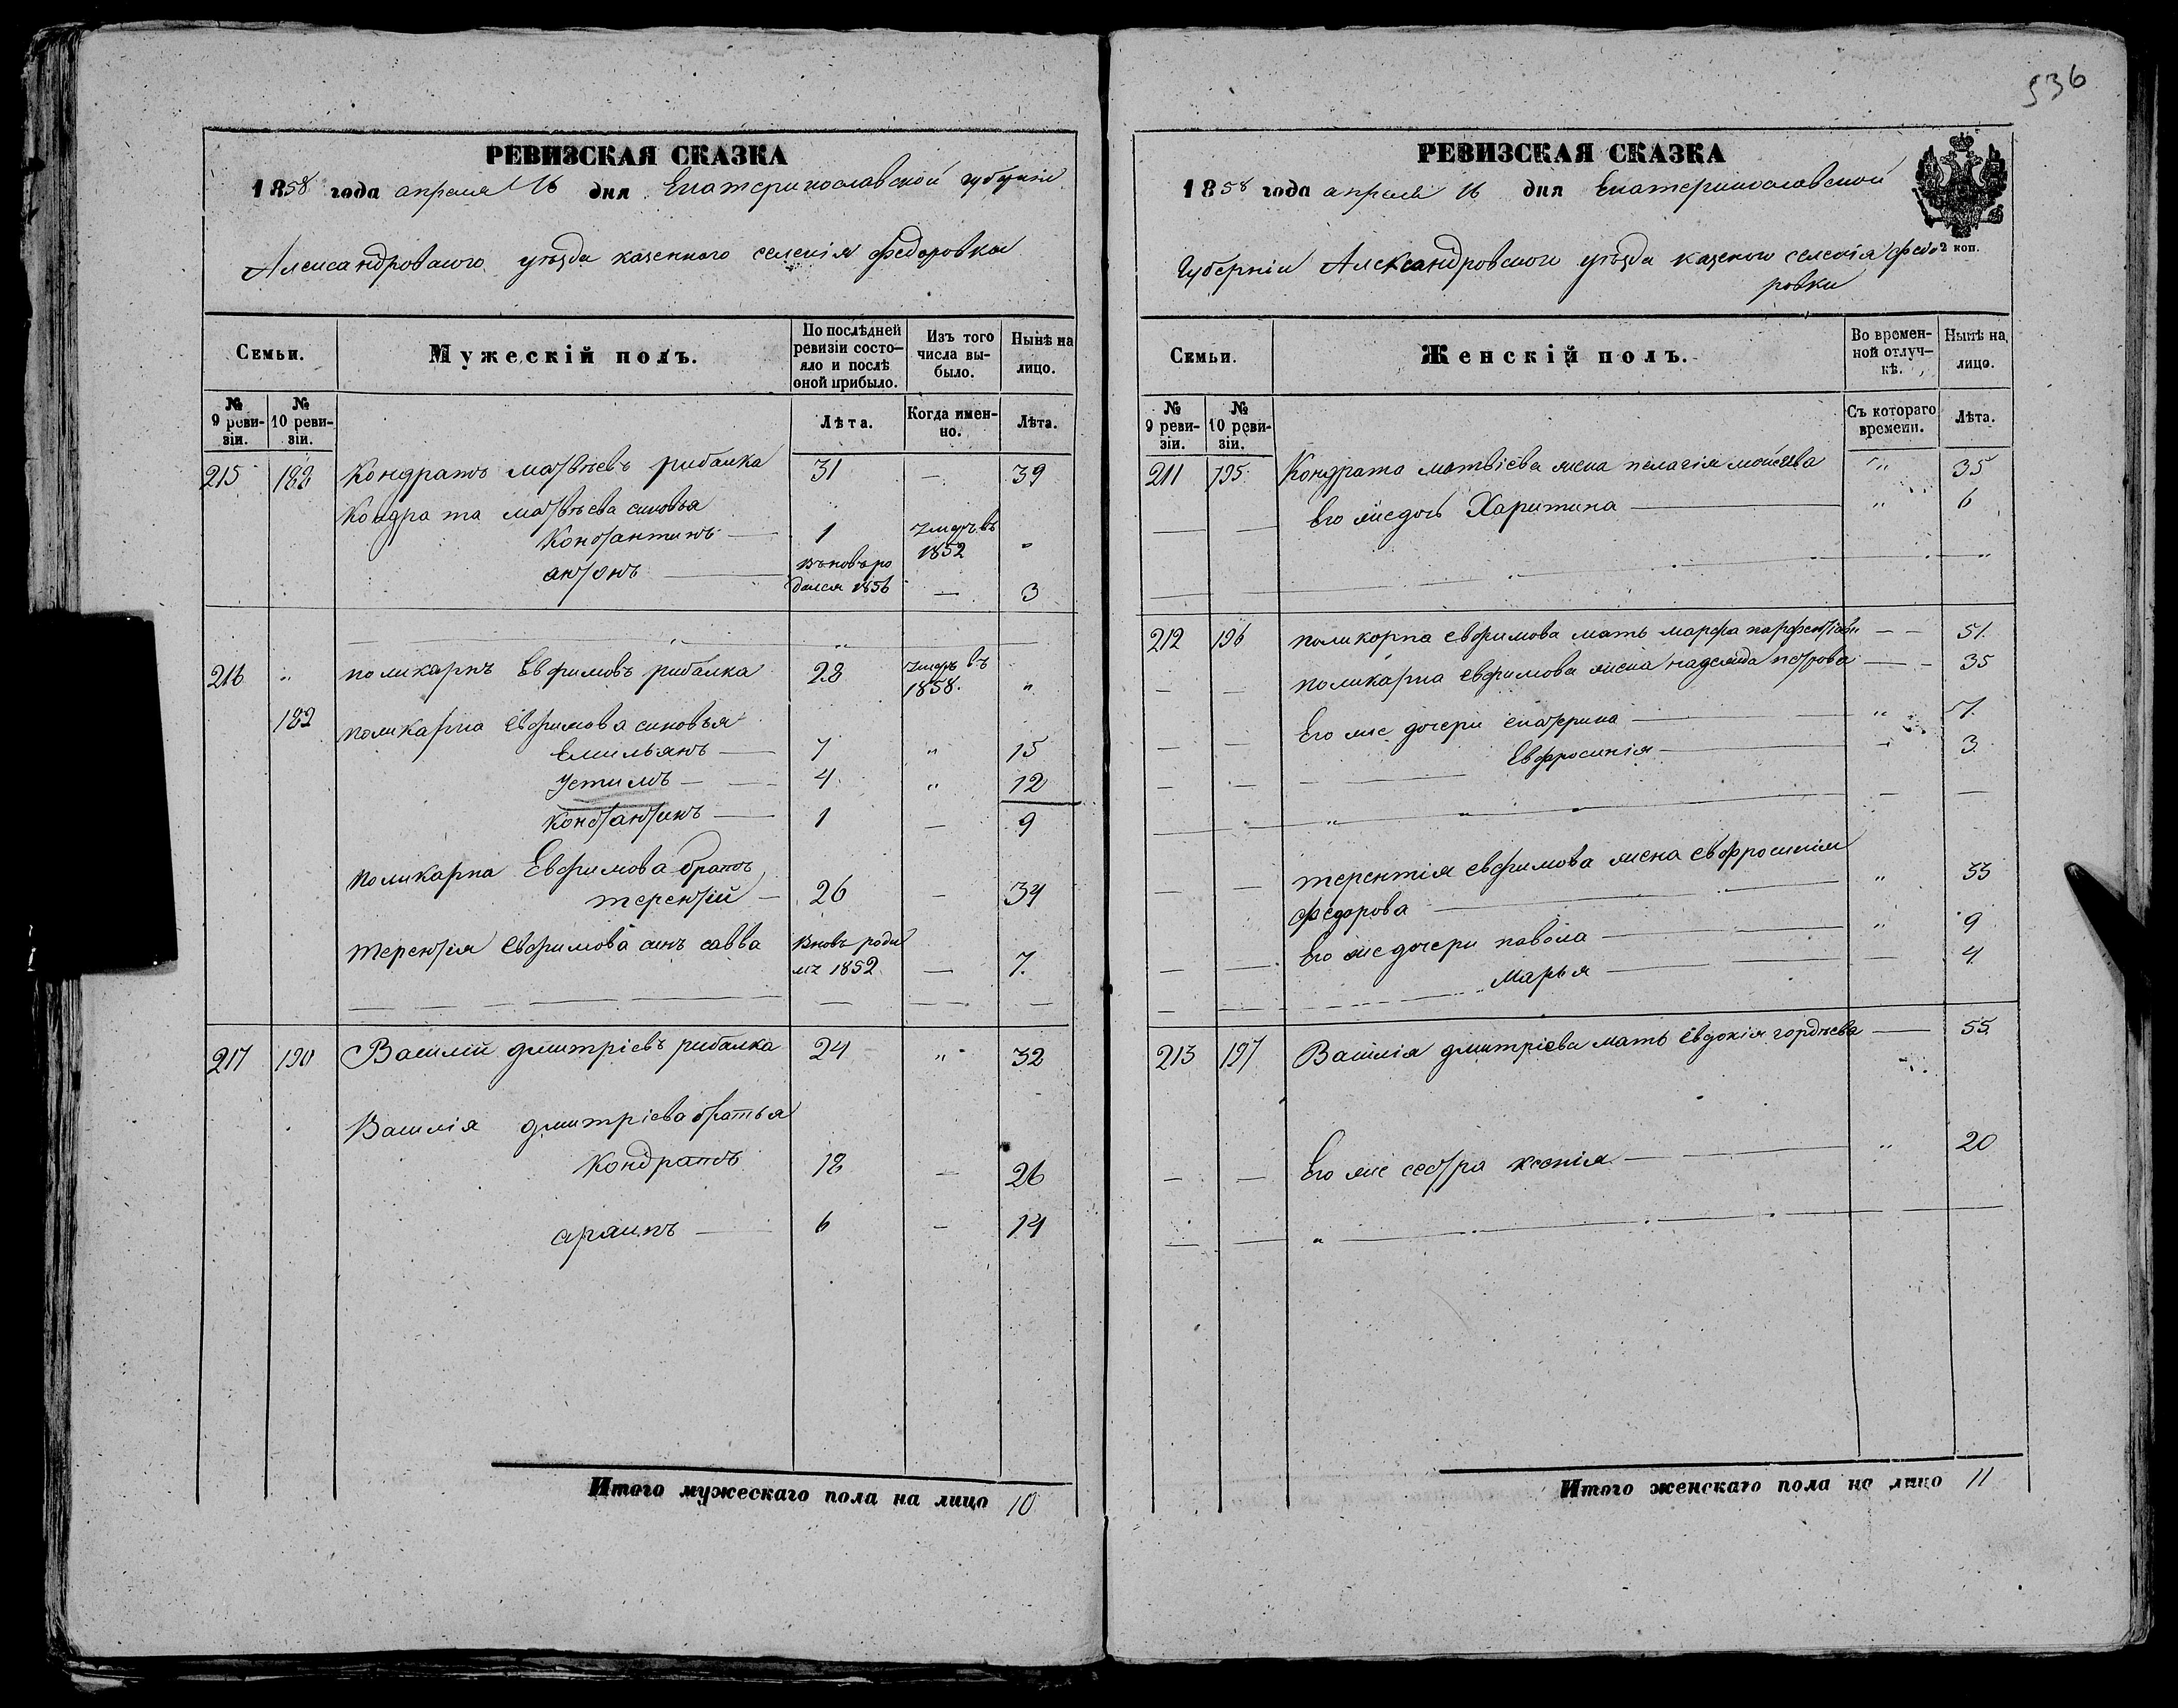 536
РЕВИЗСКАЯ СКАЗКА
1858 года апреля 16 дня Екатеринославской губерніи
Александровского уѣзда казенного селенія федоровки
Семьи.
Мужескій полъ.
По послѣдней ревизіи состо-яло и послѣ оной прибыло.
Изъ того числа вы-было.
Нынѣ на лицо.
№ 9 реви-зіи.
№ 10 реви-зіи.
Лѣта.
Когда имен-но.
Лѣта.
215 188 Кондратъ матвѣевъ рибалка 31 — 39
Кондрата матвѣева синовья
Константинъ — 1 умеръ въ 1852 "
антонъ — вновь ро дился 1856 — 3
216 " поликарпъ Евфимовъ рибалка 28 умеръ въ 1858. "
189 поликарпа Евфимова синовья
Емильянъ — 7 " 15
Устимъ — 4 " 12
Константинъ — 1 — 9
поликарпа Евфимова братъ
терентій — 26 — 34
терентія Евфимова синъ савва вновь роди 1852 — 7.
217 190 Василій дмитріевъ рибалка 24 " 32
Василія дмитріева братья
Кондратъ 18 — 26
архипъ — 6 — 14
Итого мужескаго пола на лицо 10
РЕВИЗСКАЯ СКАЗКА
1858 года апреля 16 дня Екатеринославской
2 коп.
Губерніи Александровского уѣзда казеного селенія федо
ровки
Семьи.
Женскій полъ.
Во времен-ной отлуч-кѣ.
Нынѣ на лицо.
№ 9 реви-зіи.
№ 10 реви-зіи.
Съ котораго времени.
Лѣта.
211 195 Кондрата матвіева жена пелагія мойсѣева " 35
Его же дочь Харитина — " 6
212 196 поликорпа евфимова мать марфа — — 51
— — поликарпа евфимова жена надежда петрова — — 35
— — Его же дочери екатерина — " 7
Евфросинія — " 3
— — терентія евфимова жена евфросинія
федорова — " 33
— — Его же дочери павола — " 9
марья — — 4
213 197 Василія дмитріева мать евдокія гордѣева — 55
— — Его же сестра ксенія — " 20
Итого женскаго пола на лицо 11